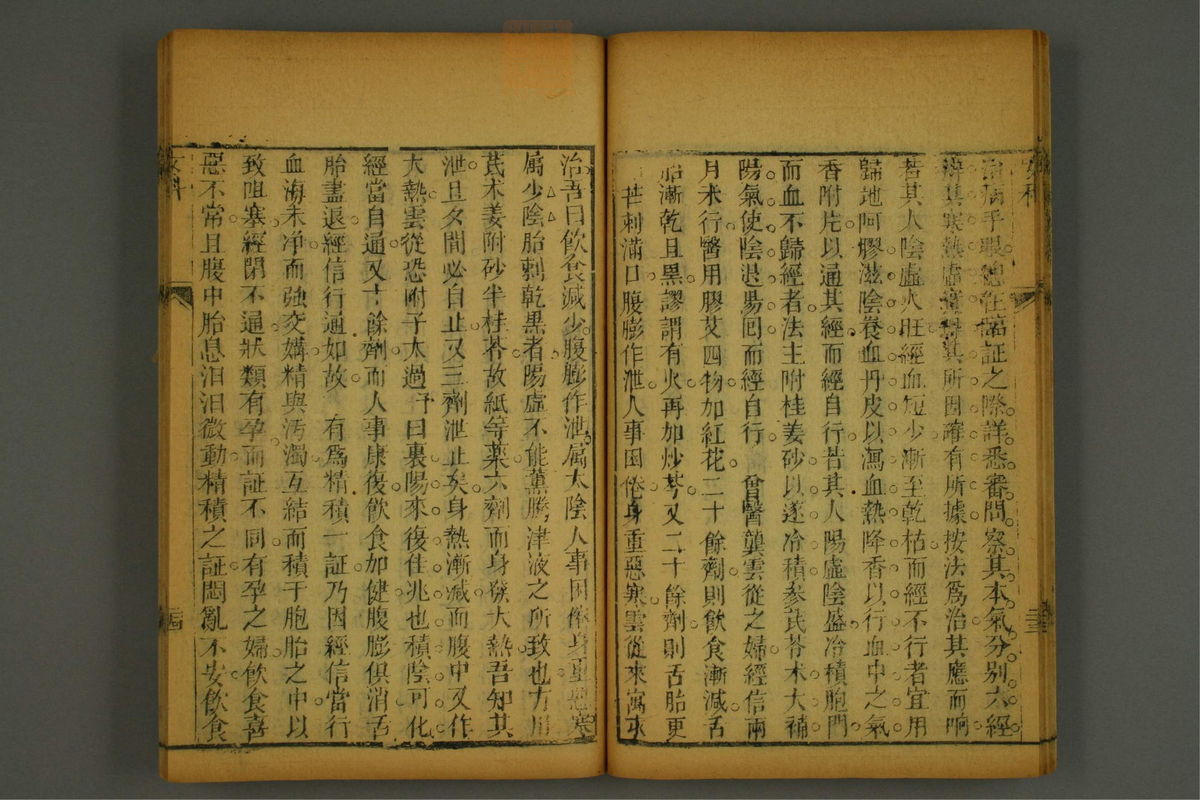 治病手眼總在臨証之際詳悉審問察其本氣分别六經
辨其寒熱虛實得其所因確有所據按法爲治其應而响
若其人陰虛火旺經血短少漸至乾枯而經不行者宜用
歸地阿膠滋陰養血丹皮以瀉血熱降香以行血中之氣
香附片以通其經而經自行若其人陽虛陰盛冷積胞門
而血不歸經者法主附桂姜砂以逐冷積參芪苓术大補
陽氣使陰退陽回而經自行 曾醫龔雲從之婦經信兩
月未行醫用膠艾四物加紅花二十餘劑則飲食漸減舌
胎漸乾且黑謬謂有火再加炒芩又二十餘劑則舌胎更
芒刺滿口腹膨作泄人事困倦身重惡寒雲從來寓求
治吾曰飲食減少腹膨作泄属太陰人事困倦身重惡寒
属少陰胎刺乾黑者陽虛不能薰騰津液之所致也方用
芪术姜附砂半桂苓故紙等藥六劑而身發大熱吾知其
泄旦夕間必自止又三劑泄止矣身熱漸減而腹中又作
大熱雲從恐附子太過予曰裏陽來復佳兆也積陰可化
經當自通又十餘劑而人事康復飲食加健腹膨俱消舌
胎盡退經信行通如故 有爲精積一証乃因經信當行
血海未净而強交媾精與汚濁互結而積于胞胎之中以
致阻塞經閉不通狀類有孕而証不同有孕之婦飲食喜
惡不常且腹中胎息汩汩微動精積之証悶亂不安飲食
女科
女科